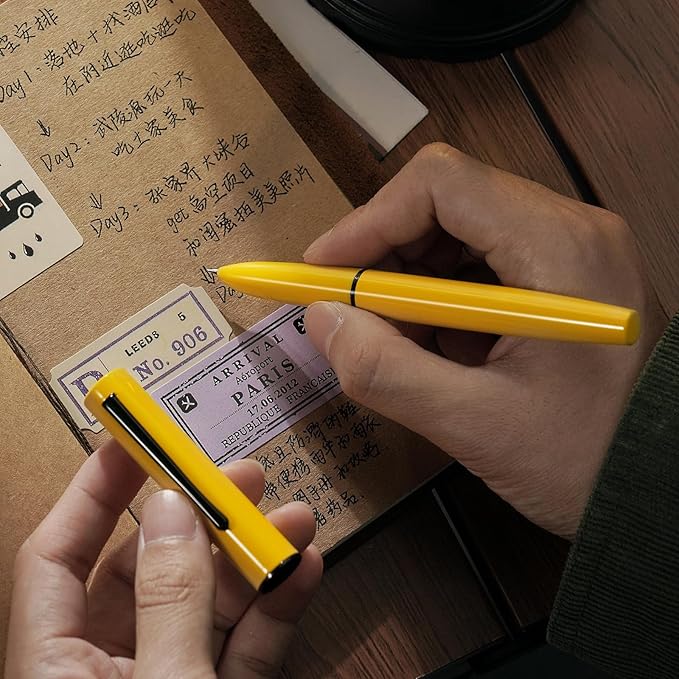 程安排
Day1: 落地+找酒店
在附近逛吃逛吃
↓
Day2: 武陵源玩一天
吃土家美食
↓
Day3: 张家界大峡谷
get高空项目
和闺蜜拍美美照片
↓
Da
LEEDS 5
No. 906
ARRIVAL
Aéroport
PARIS
17.06.2012
REPUBLIQUE FRANÇAISE
且防滑的鞋
带便携雨伞和雨衣
图手册和攻略
药品.